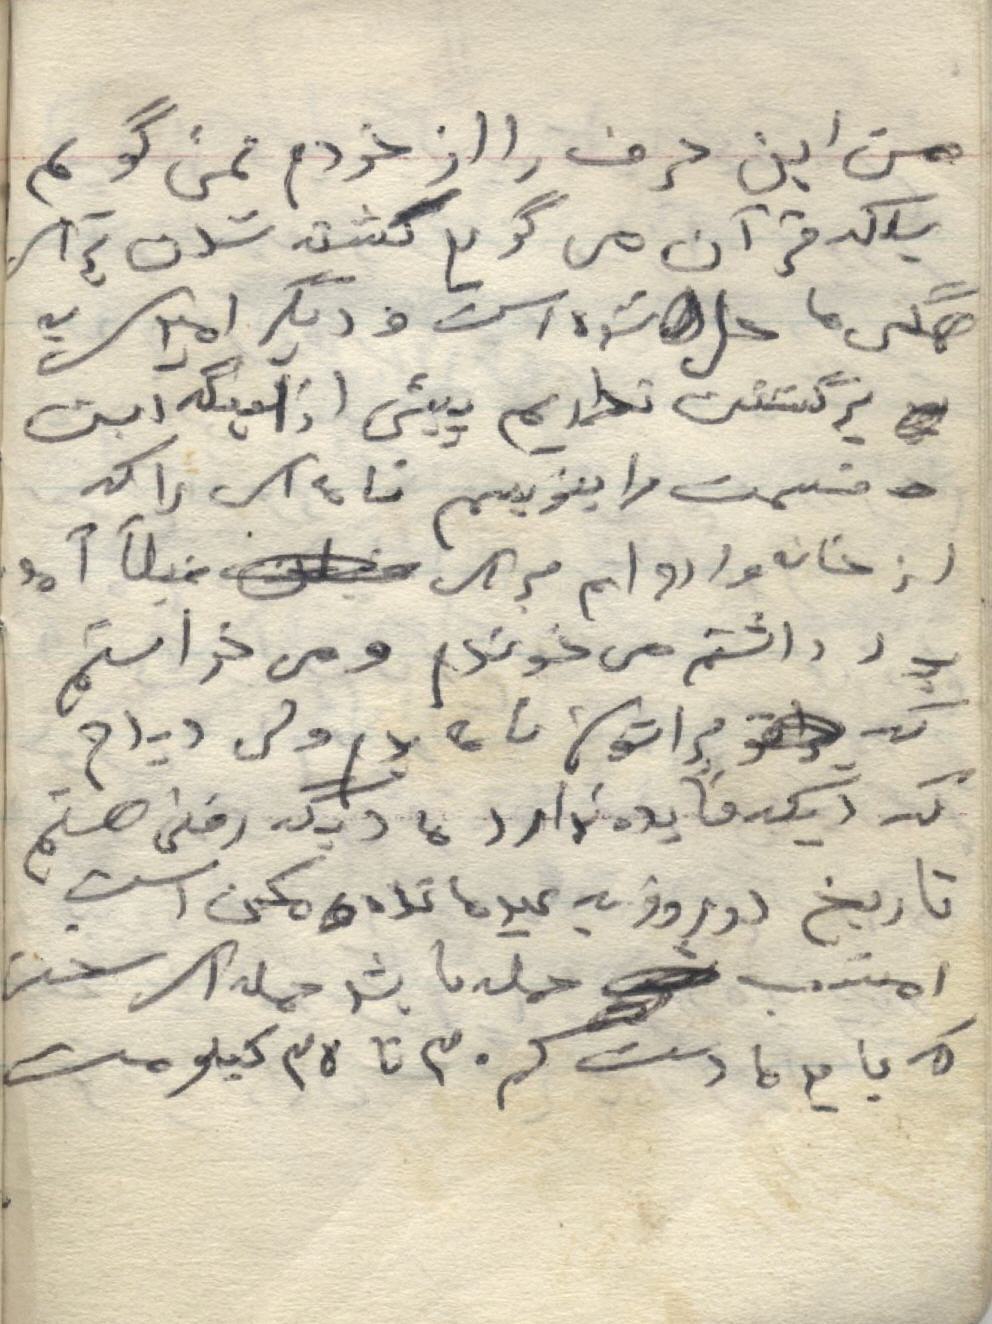 من این حرف را از خودم نمی گویم
بلکه قرآن می گوید کشته شدن برای
همگی ما حل شده است و دیگر امیدی به
برگشتن نداریم پیش از اینکه این
قسمت را بنویسم نامه ای را که
از خانه واده ام برای قبلاً آمده
بود داشتم می خوندم و می خواستم
که براتون نامه بدم ولی دیدم
که دیگه فایده ندارد ما دیگه رفتنی هستم
تاریخ دو روز به عید مانده ممکن است
امشب حمله ما باشد حمله ای سخت
که باید ما دست کم ۳۰ تا ۳۵ کیلو مت